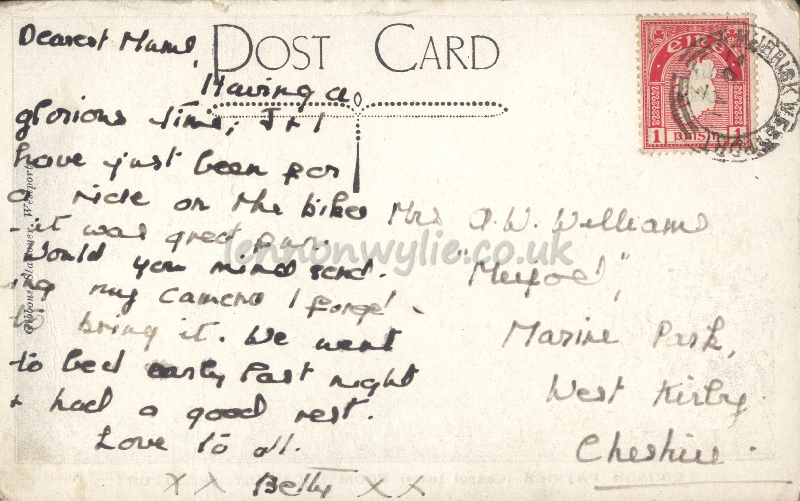 POST CARD
Dearest Mums,
Having a
glorious time; J + I
have just been for
a ride on the bikes
- it was great fun.
Would you mind send-
ing my camera I forgot
to bring it. We went
to bed early last night
+ had a good rest.
Love to all.
x x Betty x x
Mrs A.W. Williams
Marine Park,
West Kirby
Cheshire.
éire
1 pinsin 1
Gibbons, Stationer, Westport
lennonwylie.co.uk